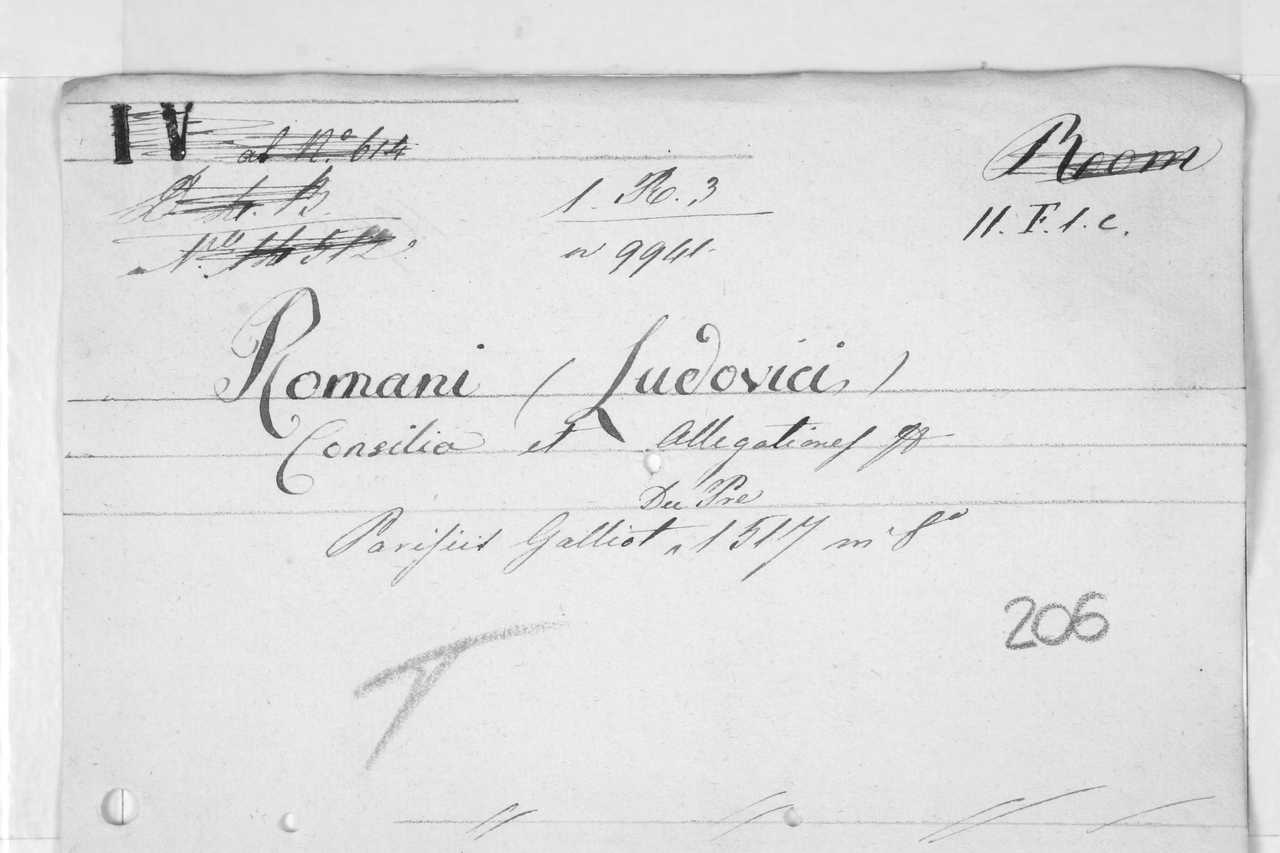 IV ad N.° 614
Room
B.
1. R. 3
II. F. 1. c.
N.ro 512
n 9941.
Romani (Ludovici)
Consilia et Allegationes
Du Pre
Parisiis Galliot 1517 in 8°
206